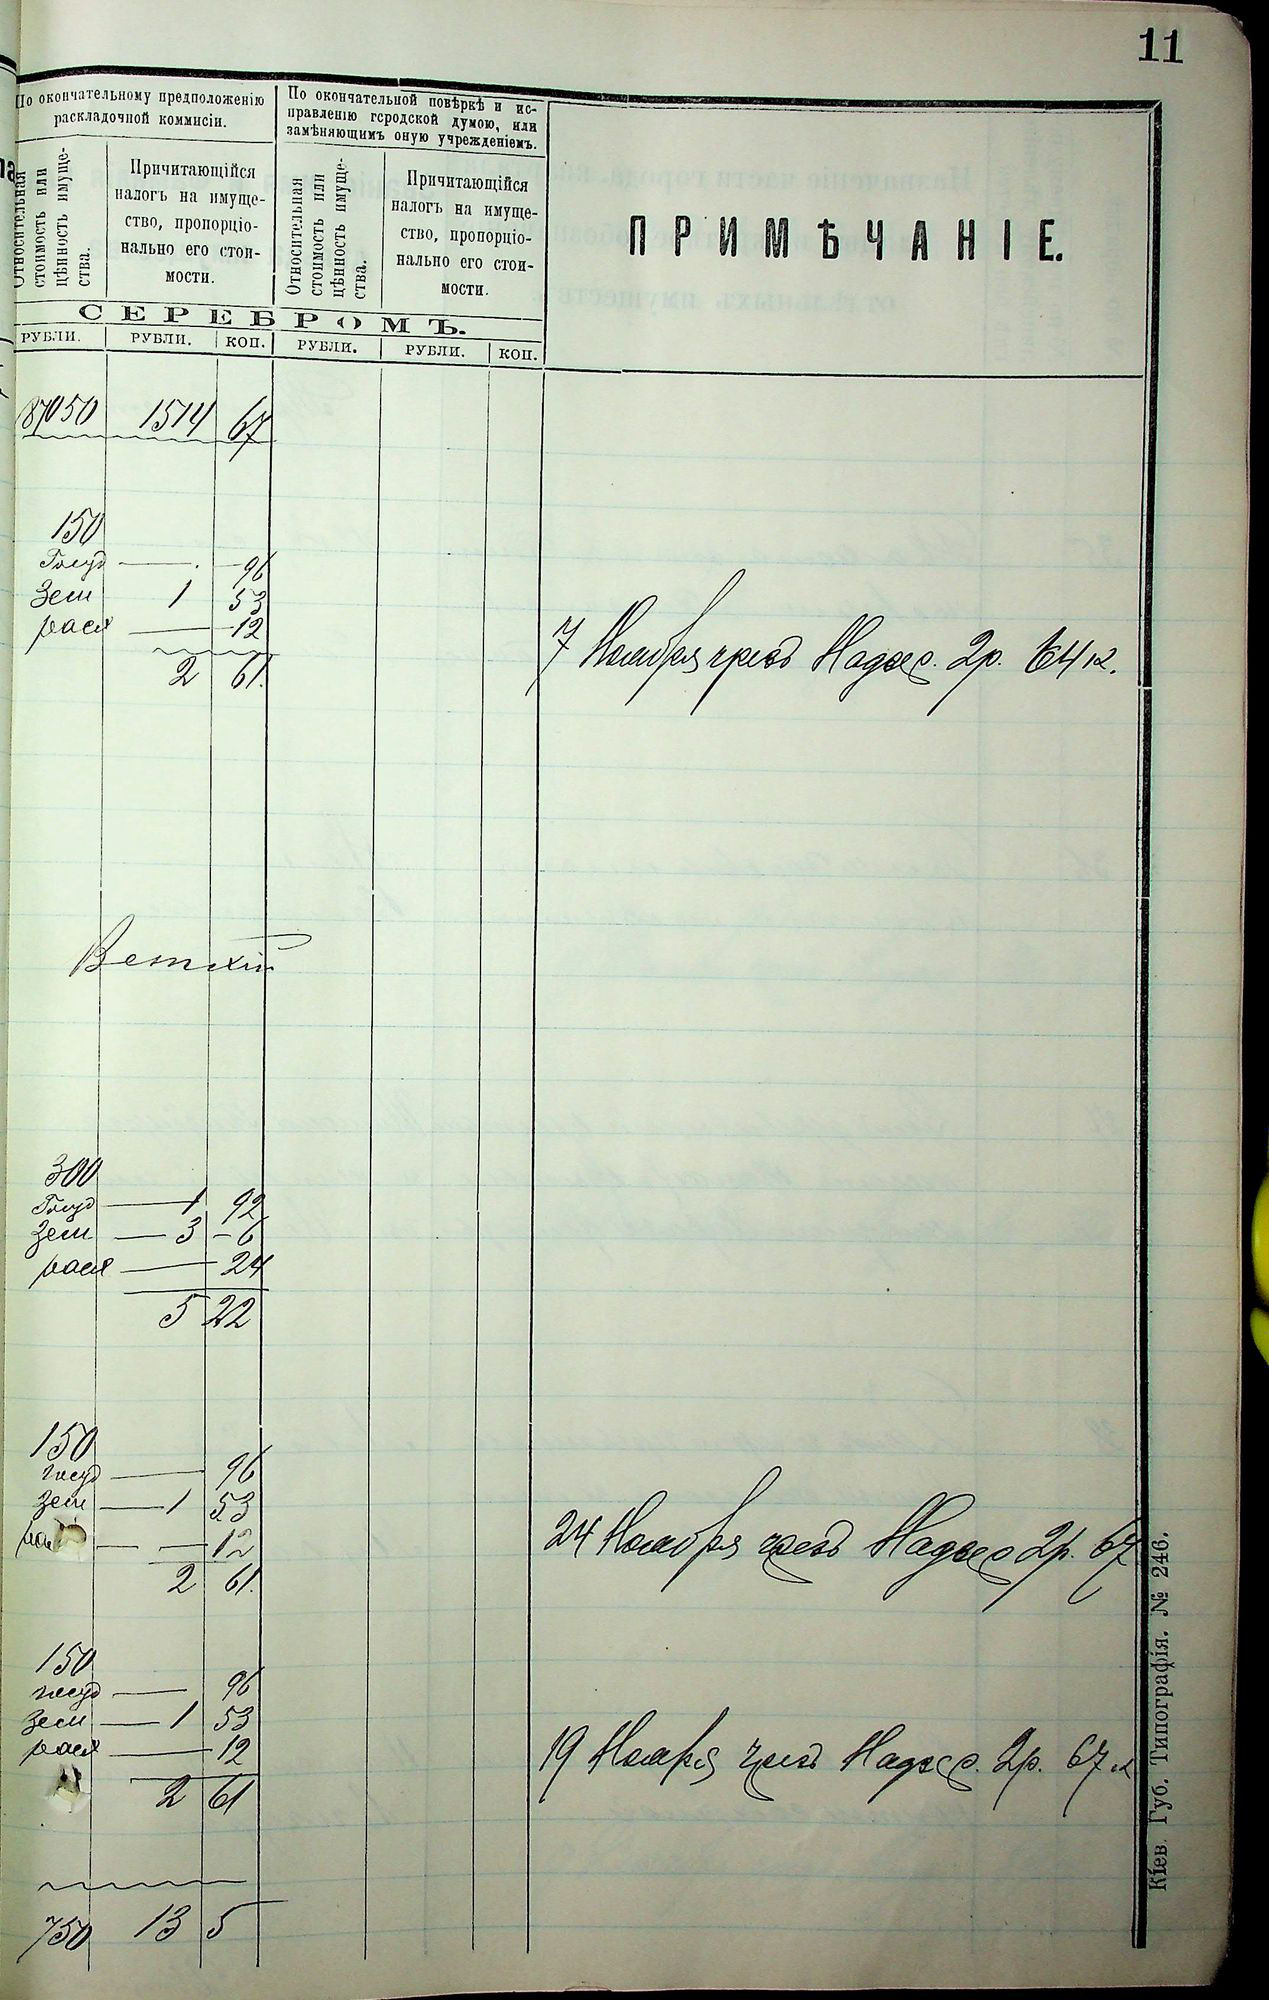 11
По окончательному предположенію
раскладочной коммисіи.
По окончательной повѣркѣ и ис-
правленію городской думою, или
замѣняющимъ оную учрежденіемъ.
Относительная
стоимость или
цѣнность имуще-
ства.
Причитающійся
налогъ на имуще-
ство, пропорціо-
нально его стои-
мости.
Относительная
стоимость или
цѣнность имуще-
ства.
Причитающійся
налогъ на имуще-
ство, пропорціо-
нально его стои-
мости.
ПРИМѢЧАНІЕ.
СЕРЕБРОМЪ.
РУБЛИ. РУБЛИ. КОП. РУБЛИ. РУБЛИ. КОП.
87050 1514 67
150
Госуд — 96
Зем 1 53
расх — 12
2 61.
7 Ноября чрезъ Надзс. 2р. 64к.
Ветхій
300
Госуд — 1 92
Зем — 3 – 6
расх — 24
5 22
150
госуд — 96
Зем — 1 53
— — 12
2 61.
24 Ноября чрезъ Надзс 2р. 67
150
госуд — 96
Зем — 1 53
расх — 12
2 61
19 Ноября чрезъ Надзс. 2р. 67к
750 13 5
Кіев. Губ. Типографія. № 246.